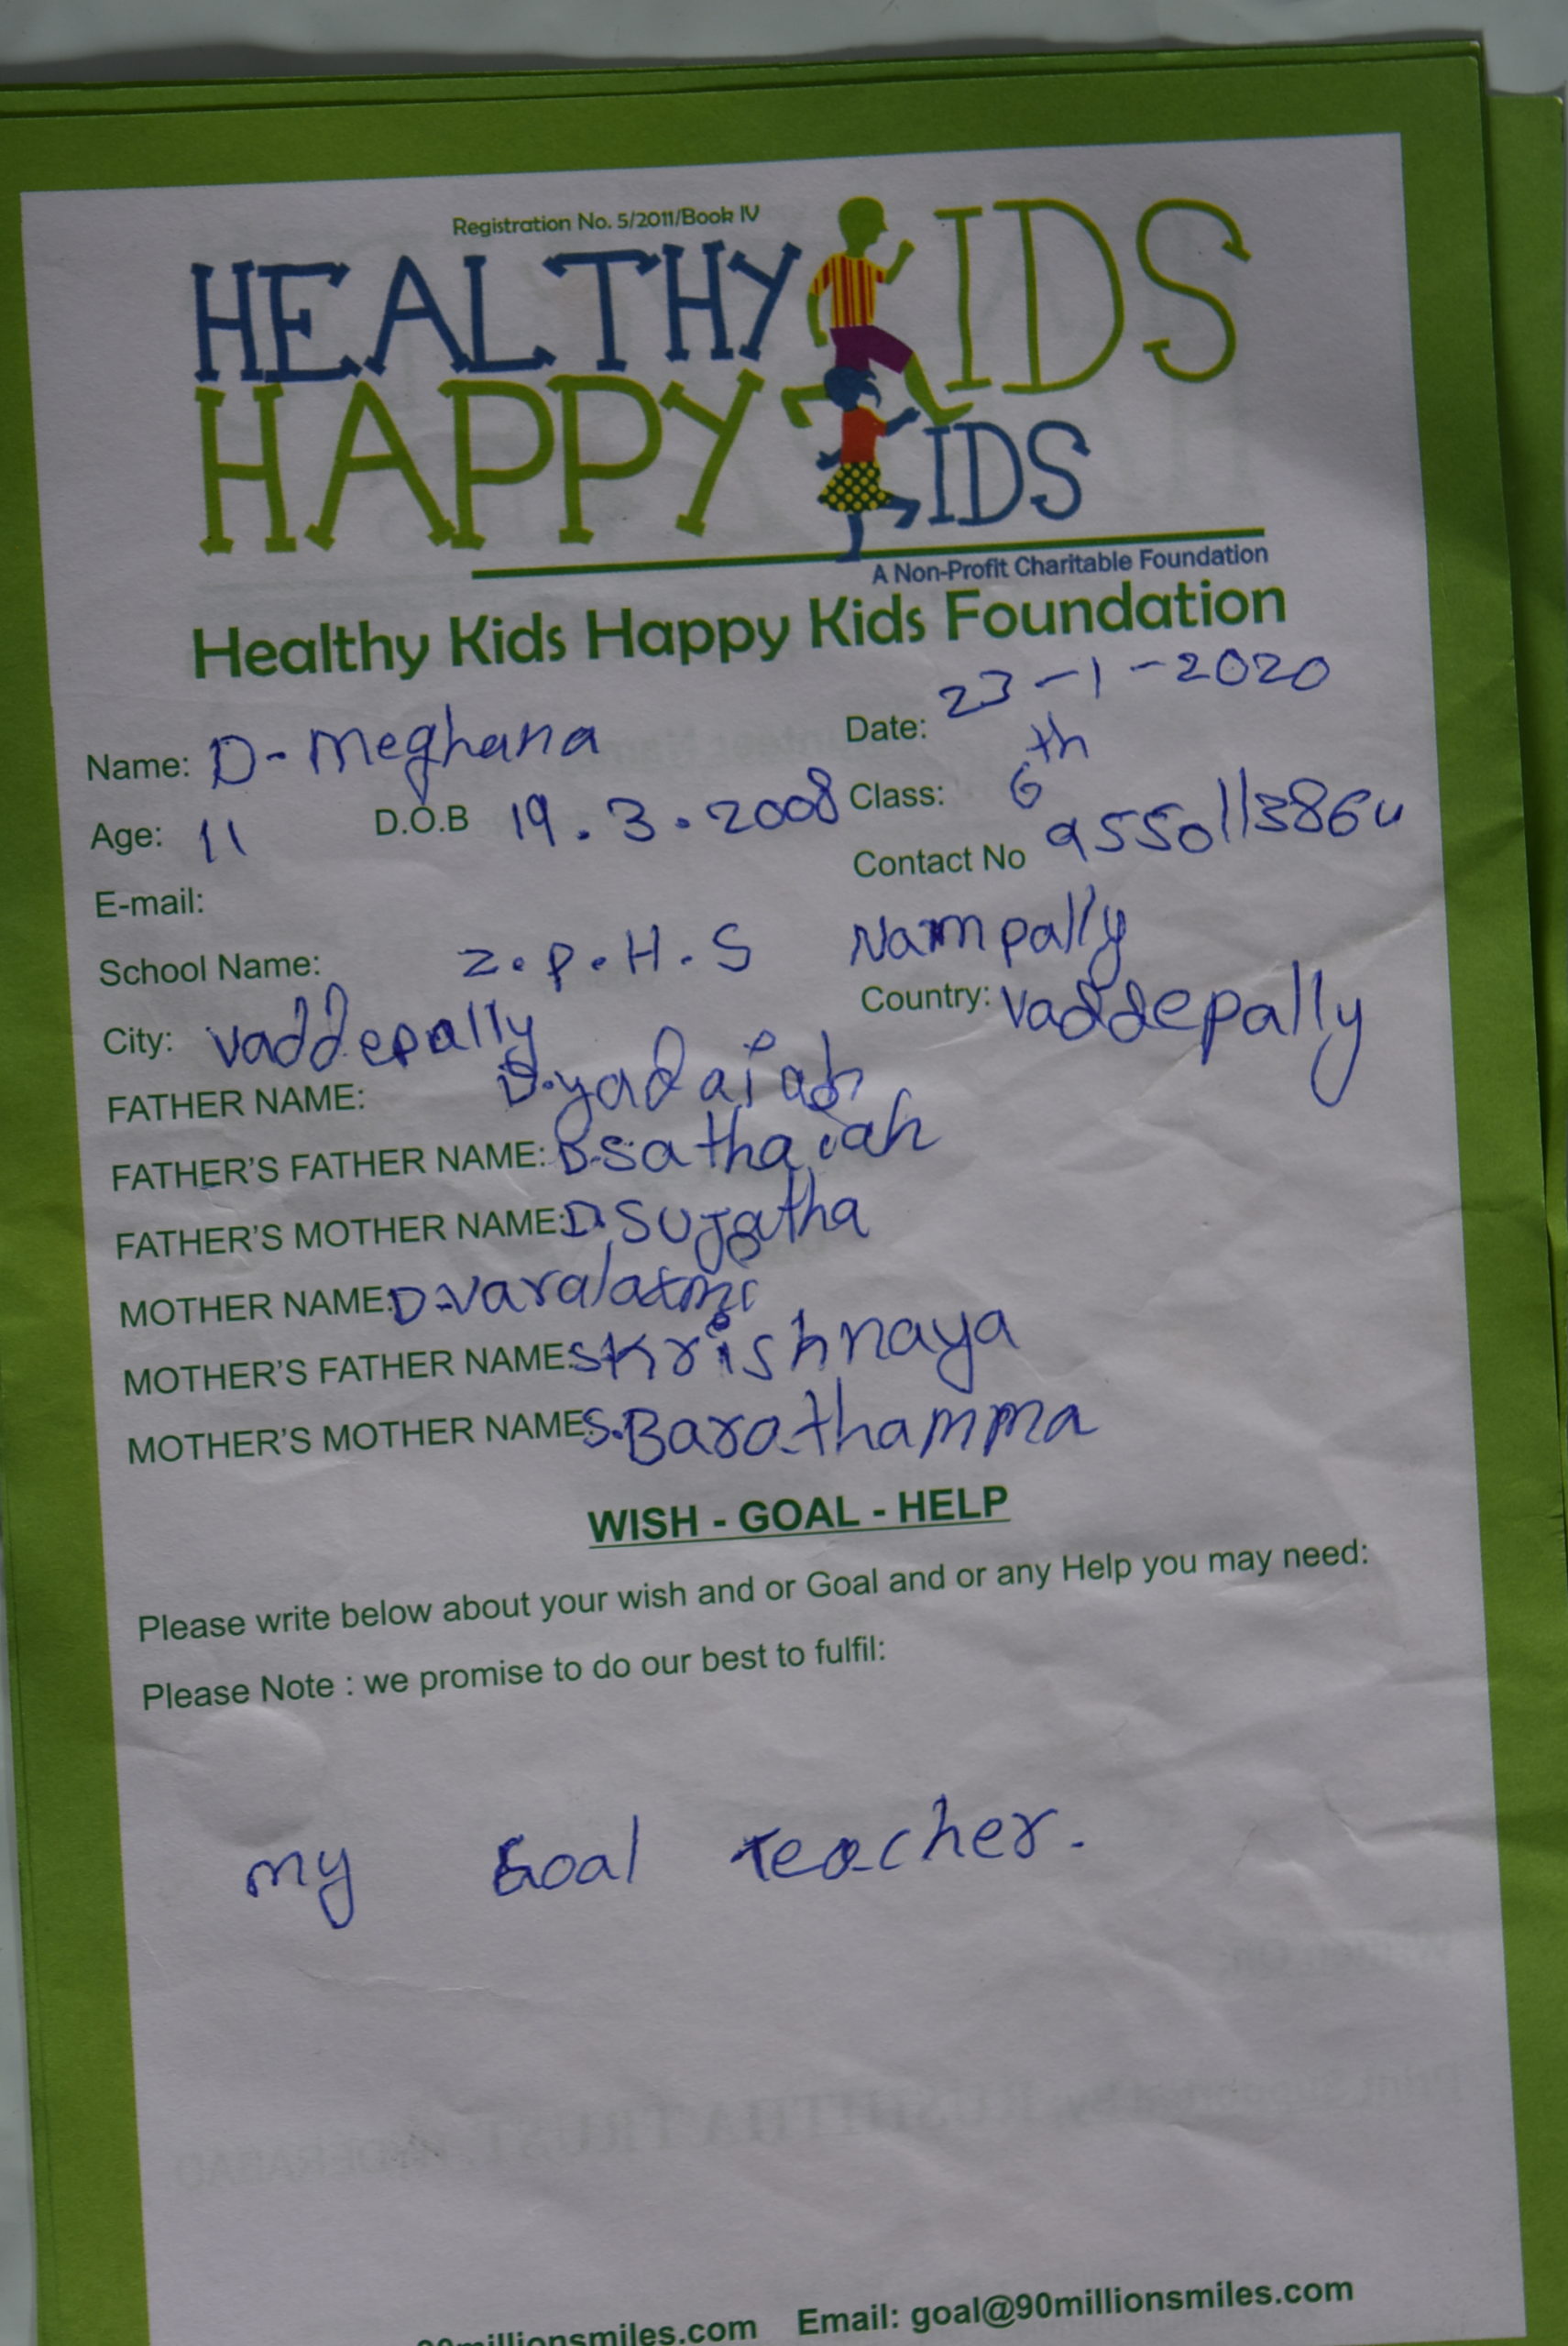 Registration No. 5/2011/Book IV
HEALTHY KIDS
HAPPY KIDS
A Non-Profit Charitable Foundation
Healthy Kids Happy Kids Foundation
Name: D-Meghana Date: 23-1-2020
Age: 11 D.O.B 19.3.2008 Class: 6th
E-mail: Contact No 9550113864
School Name: Z.P.H.S Nampally
City: Vaddepally Country: Vaddepally
FATHER NAME: D.yadaiah
FATHER'S FATHER NAME: D.Sathaiah
FATHER'S MOTHER NAME: D.Sujatha
MOTHER NAME: D.Varalaxmi
MOTHER'S FATHER NAME: S Krishnaya
MOTHER'S MOTHER NAME: S.Barathamma
WISH - GOAL - HELP
Please write below about your wish and or Goal and or any Help you may need:
Please Note : we promise to do our best to fulfil:
my Goal teacher.
90millionsmiles.com Email: goal@90millionsmiles.com